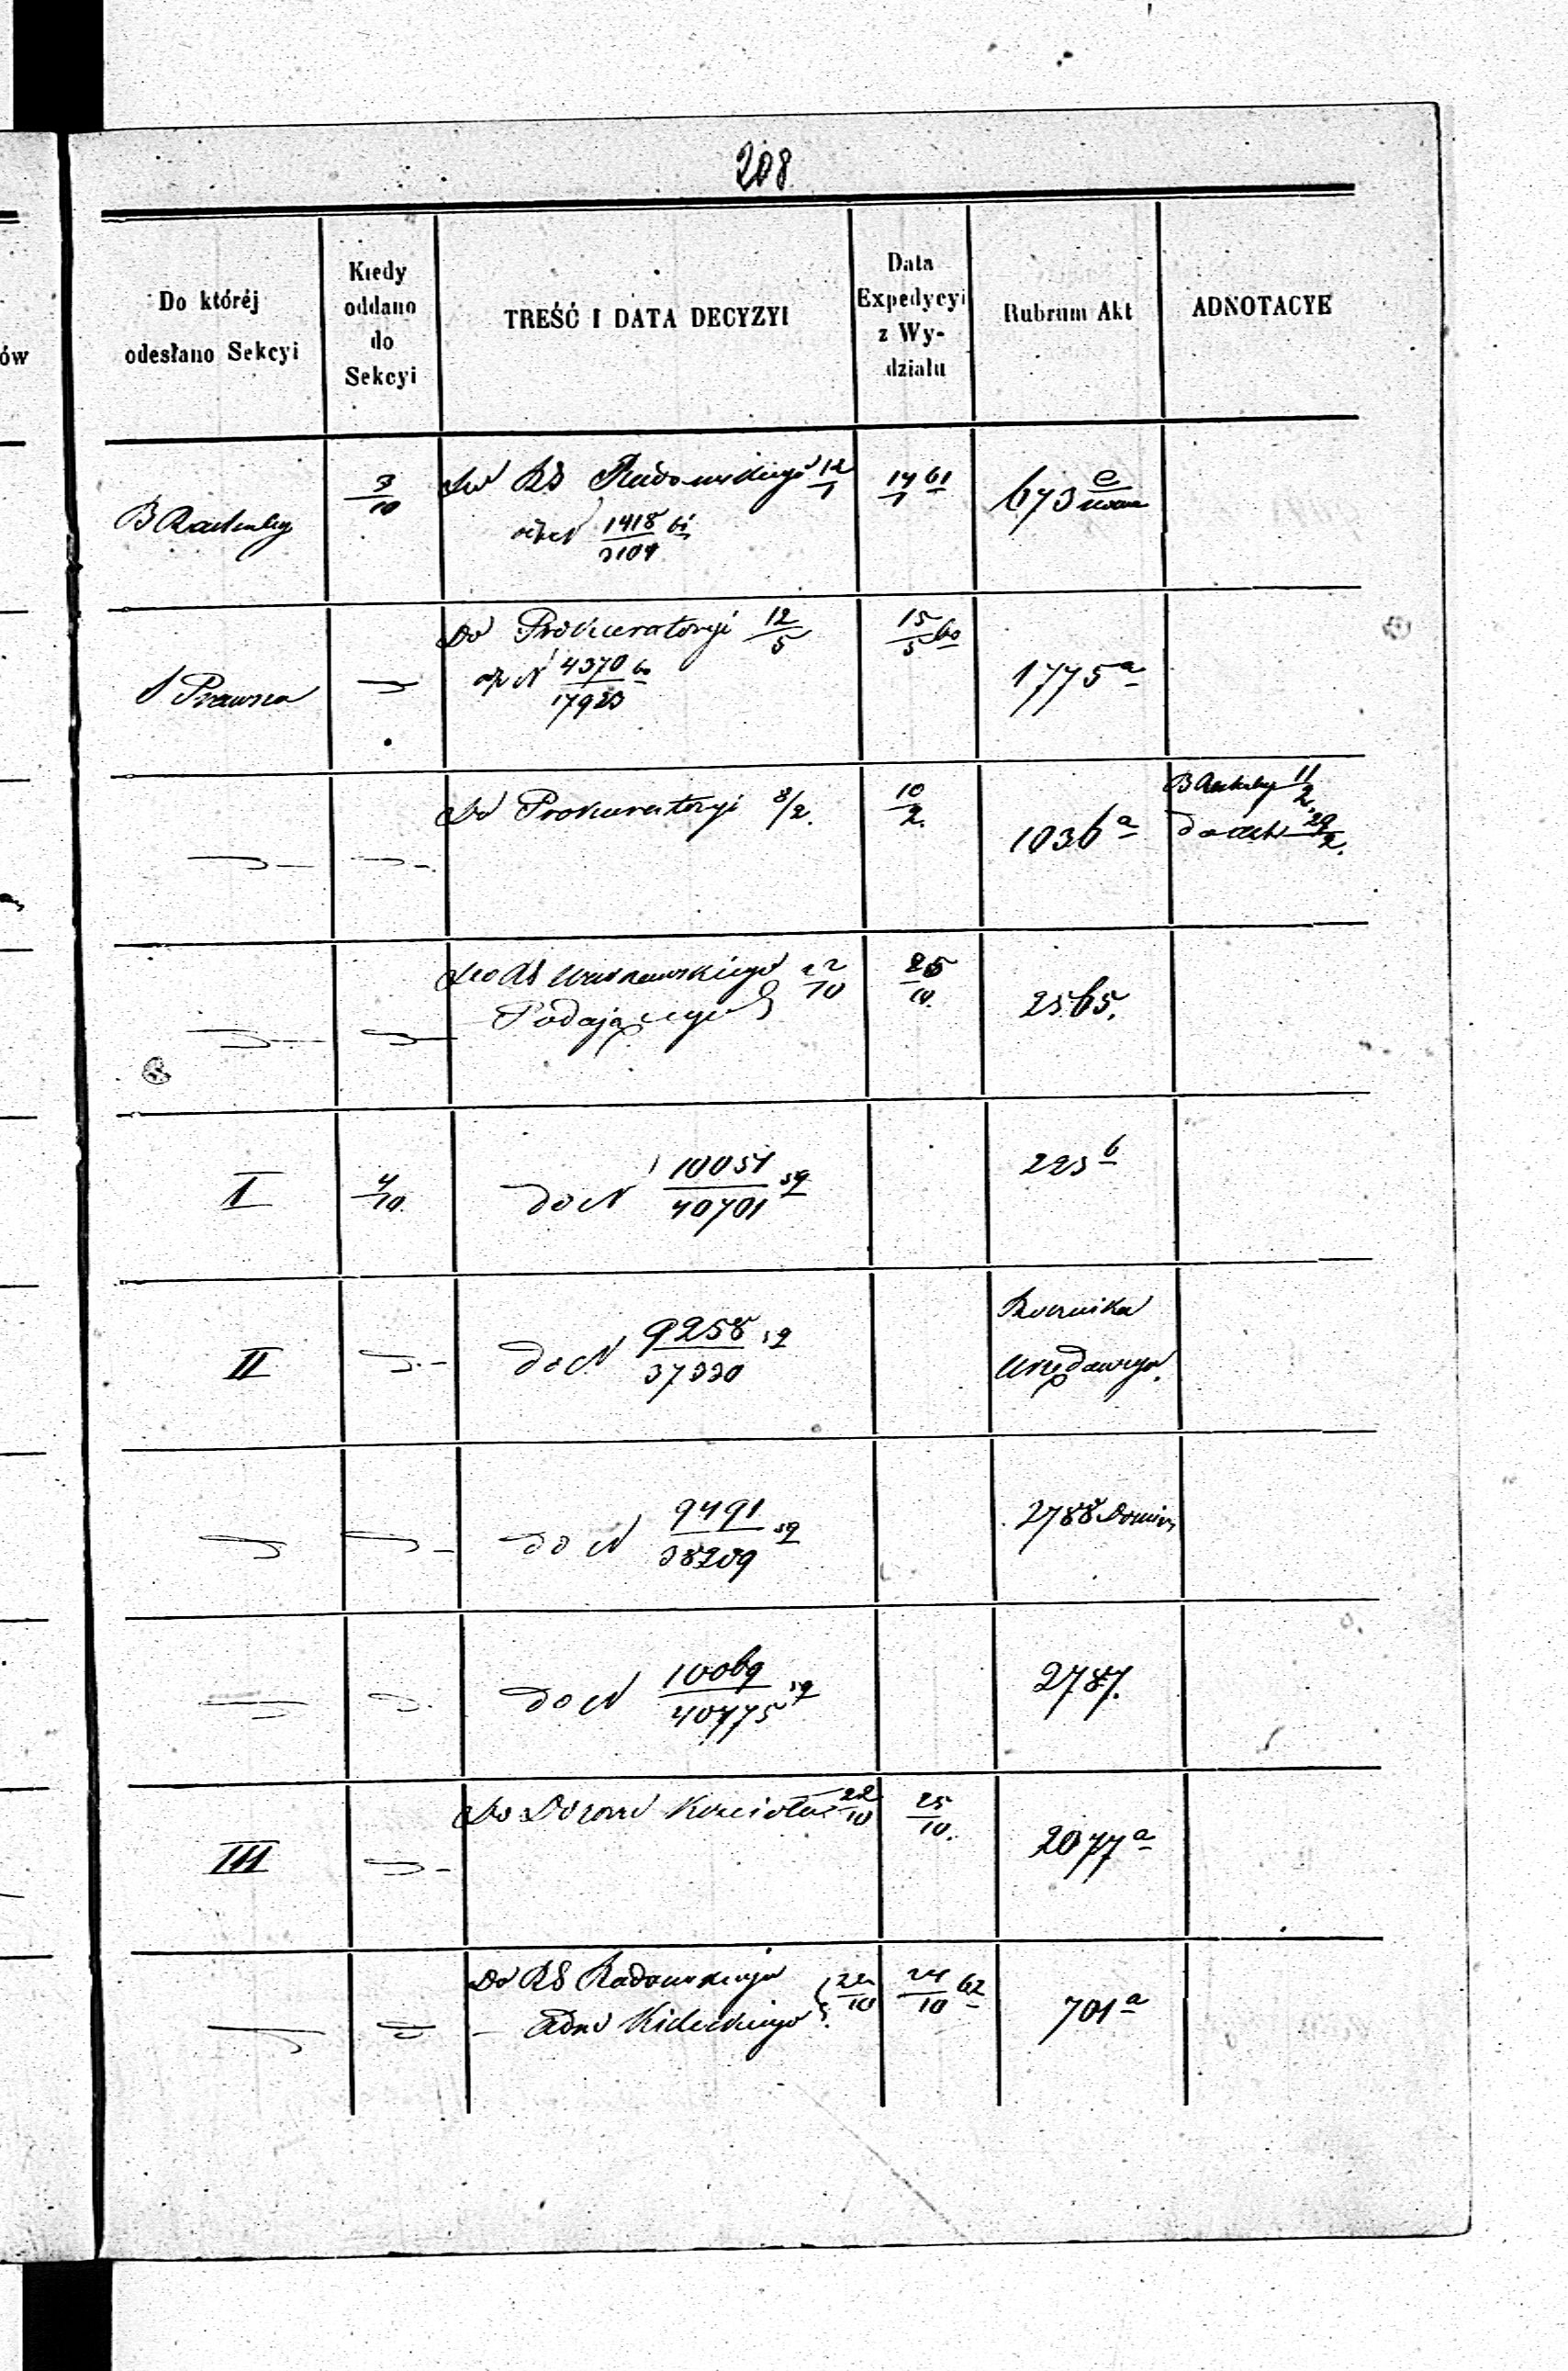 208
Do któréj
odesłano Sekcyi
Kiedy
oddano
do
Sekcyi
TREŚĆ I DATA DECYZYI
Data
Expedycyi
z Wy-
działu
Rubrum Akt
ADNOTACYE
ów
B
3/10
Do RS Radomskiego 12/1
N 1418/3104 61
14/1 61
673 e
S Prawna
Do Prokuratoryi 12/5
N 4370/17923 60
15/5 60
1775 a
Do Prokuratoryi 8/2.
10/2.
1036 a
B 11/2
do akt 29/2.
Do RS Warszawskiego 22/10
Podającego
25/10.
2565.
I
4/10.
do N 10051/40701 59
223 b
II
do N 9258/37330 59
Urzędowego.
do N 9491/38209 59
2788
do N 10069/40775 59
2787.
III
Do Dozoru Kościoła 22/10
25/10.
2077 a
Do RS Radomskiego
Kieleckiego 22/10
24/10 62
701 a